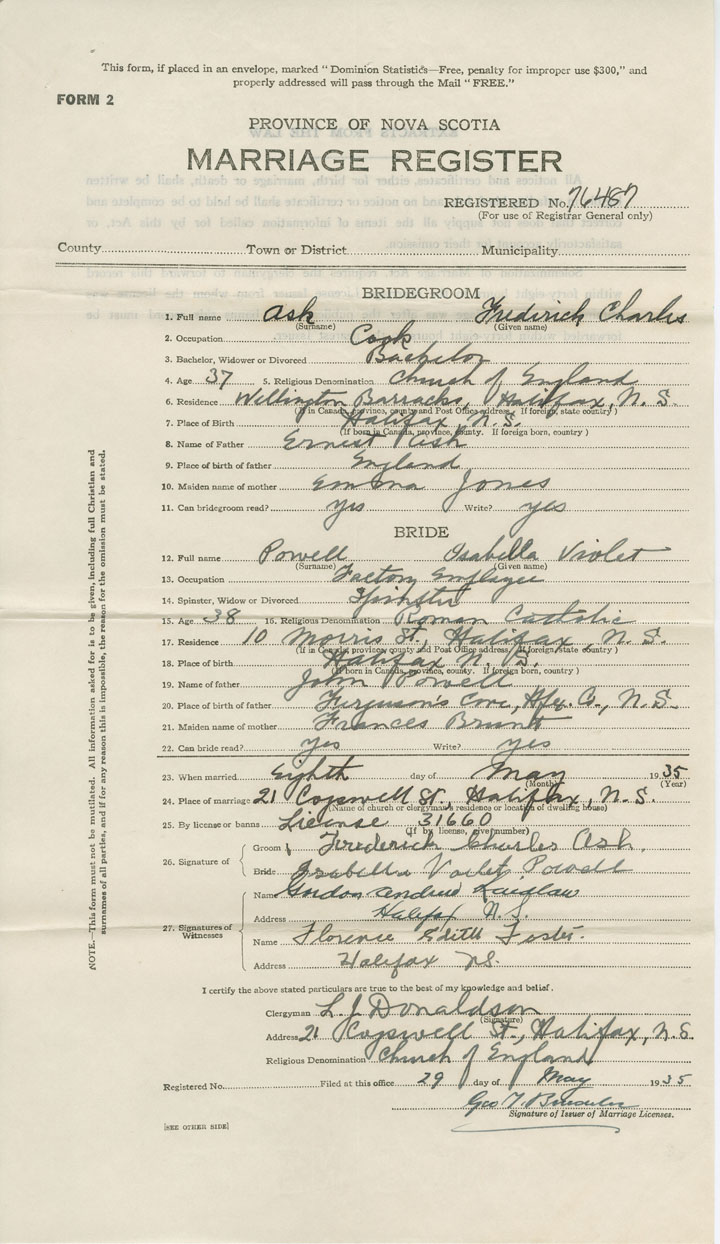 This form, if placed in an envelope, marked "Dominion Statistics—Free, penalty for improper use $300," and
properly addressed will pass through the Mail "FREE."
FORM 2
PROVINCE OF NOVA SCOTIA
MARRIAGE REGISTER
REGISTERED No. 76487
(For use of Registrar General only)
County Town or District Municipality
BRIDEGROOM
1. Full name Ash Frederick Charles
(Surname) (Given name)
2. Occupation Cook
3. Bachelor, Widower or Divorced Bachelor
4. Age 37 5. Religious Denomination Church of England
6. Residence Wellington Barracks, Halifax, N. S.
(If in Canada, province, county and Post Office address. If foreign, state country)
7. Place of Birth Halifax, N. S.
(If born in Canada, province, county. If foreign born, country)
8. Name of Father Ernest Ash
9. Place of birth of father England
10. Maiden name of mother Emma Jones
11. Can bridegroom read? yes Write? yes
BRIDE
12. Full name Powell Isabella Violet
(Surname) (Given name)
13. Occupation Factory Employee
14. Spinster, Widow or Divorced Spinster
15. Age 38 16. Religious Denomination Roman Catholic
17. Residence 10 Morris St., Halifax, N. S.
(If in Canada, province, county and Post Office address. If foreign state country)
18. Place of birth Halifax N. S.
(If born in Canada, province, county. If foreign born, country)
19. Name of father John Powell
20. Place of birth of father Ferguson's Cove, Hfx. Co., N. S.
21. Maiden name of mother Frances Brunt
22. Can bride read? yes Write? yes
23. When married Eighth day of May 1935
(Month) (Year)
24. Place of marriage 21 Cogswell St. Halifax, N. S.
(Name of church or clergyman's residence or location of dwelling house)
25. By license or banns License 31660
(If by license, give number)
26. Signature of
Groom Frederick Charles Ash
Bride Isabella Violet Powell
27. Signatures of Witnesses
Name Gordon Andrew
Address Halifax N. S.
Name Florence Edith Foster
Address Halifax NS.
I certify the above stated particulars are true to the best of my knowledge and belief.
Clergyman L. J. Donaldson
(Signature)
Address 21 Cogswell St., Halifax, N. S.
Religious Denomination Church of England
Registered No. Filed at this office 29 day of May 1935
Geo
Signature of Issuer of Marriage Licenses.
[SEE OTHER SIDE]
NOTE.—This form must not be mutilated. All information asked for is to be given, including full Christian and
surnames of all parties, and if for any reason this is impossible, the reason for the omission must be stated.